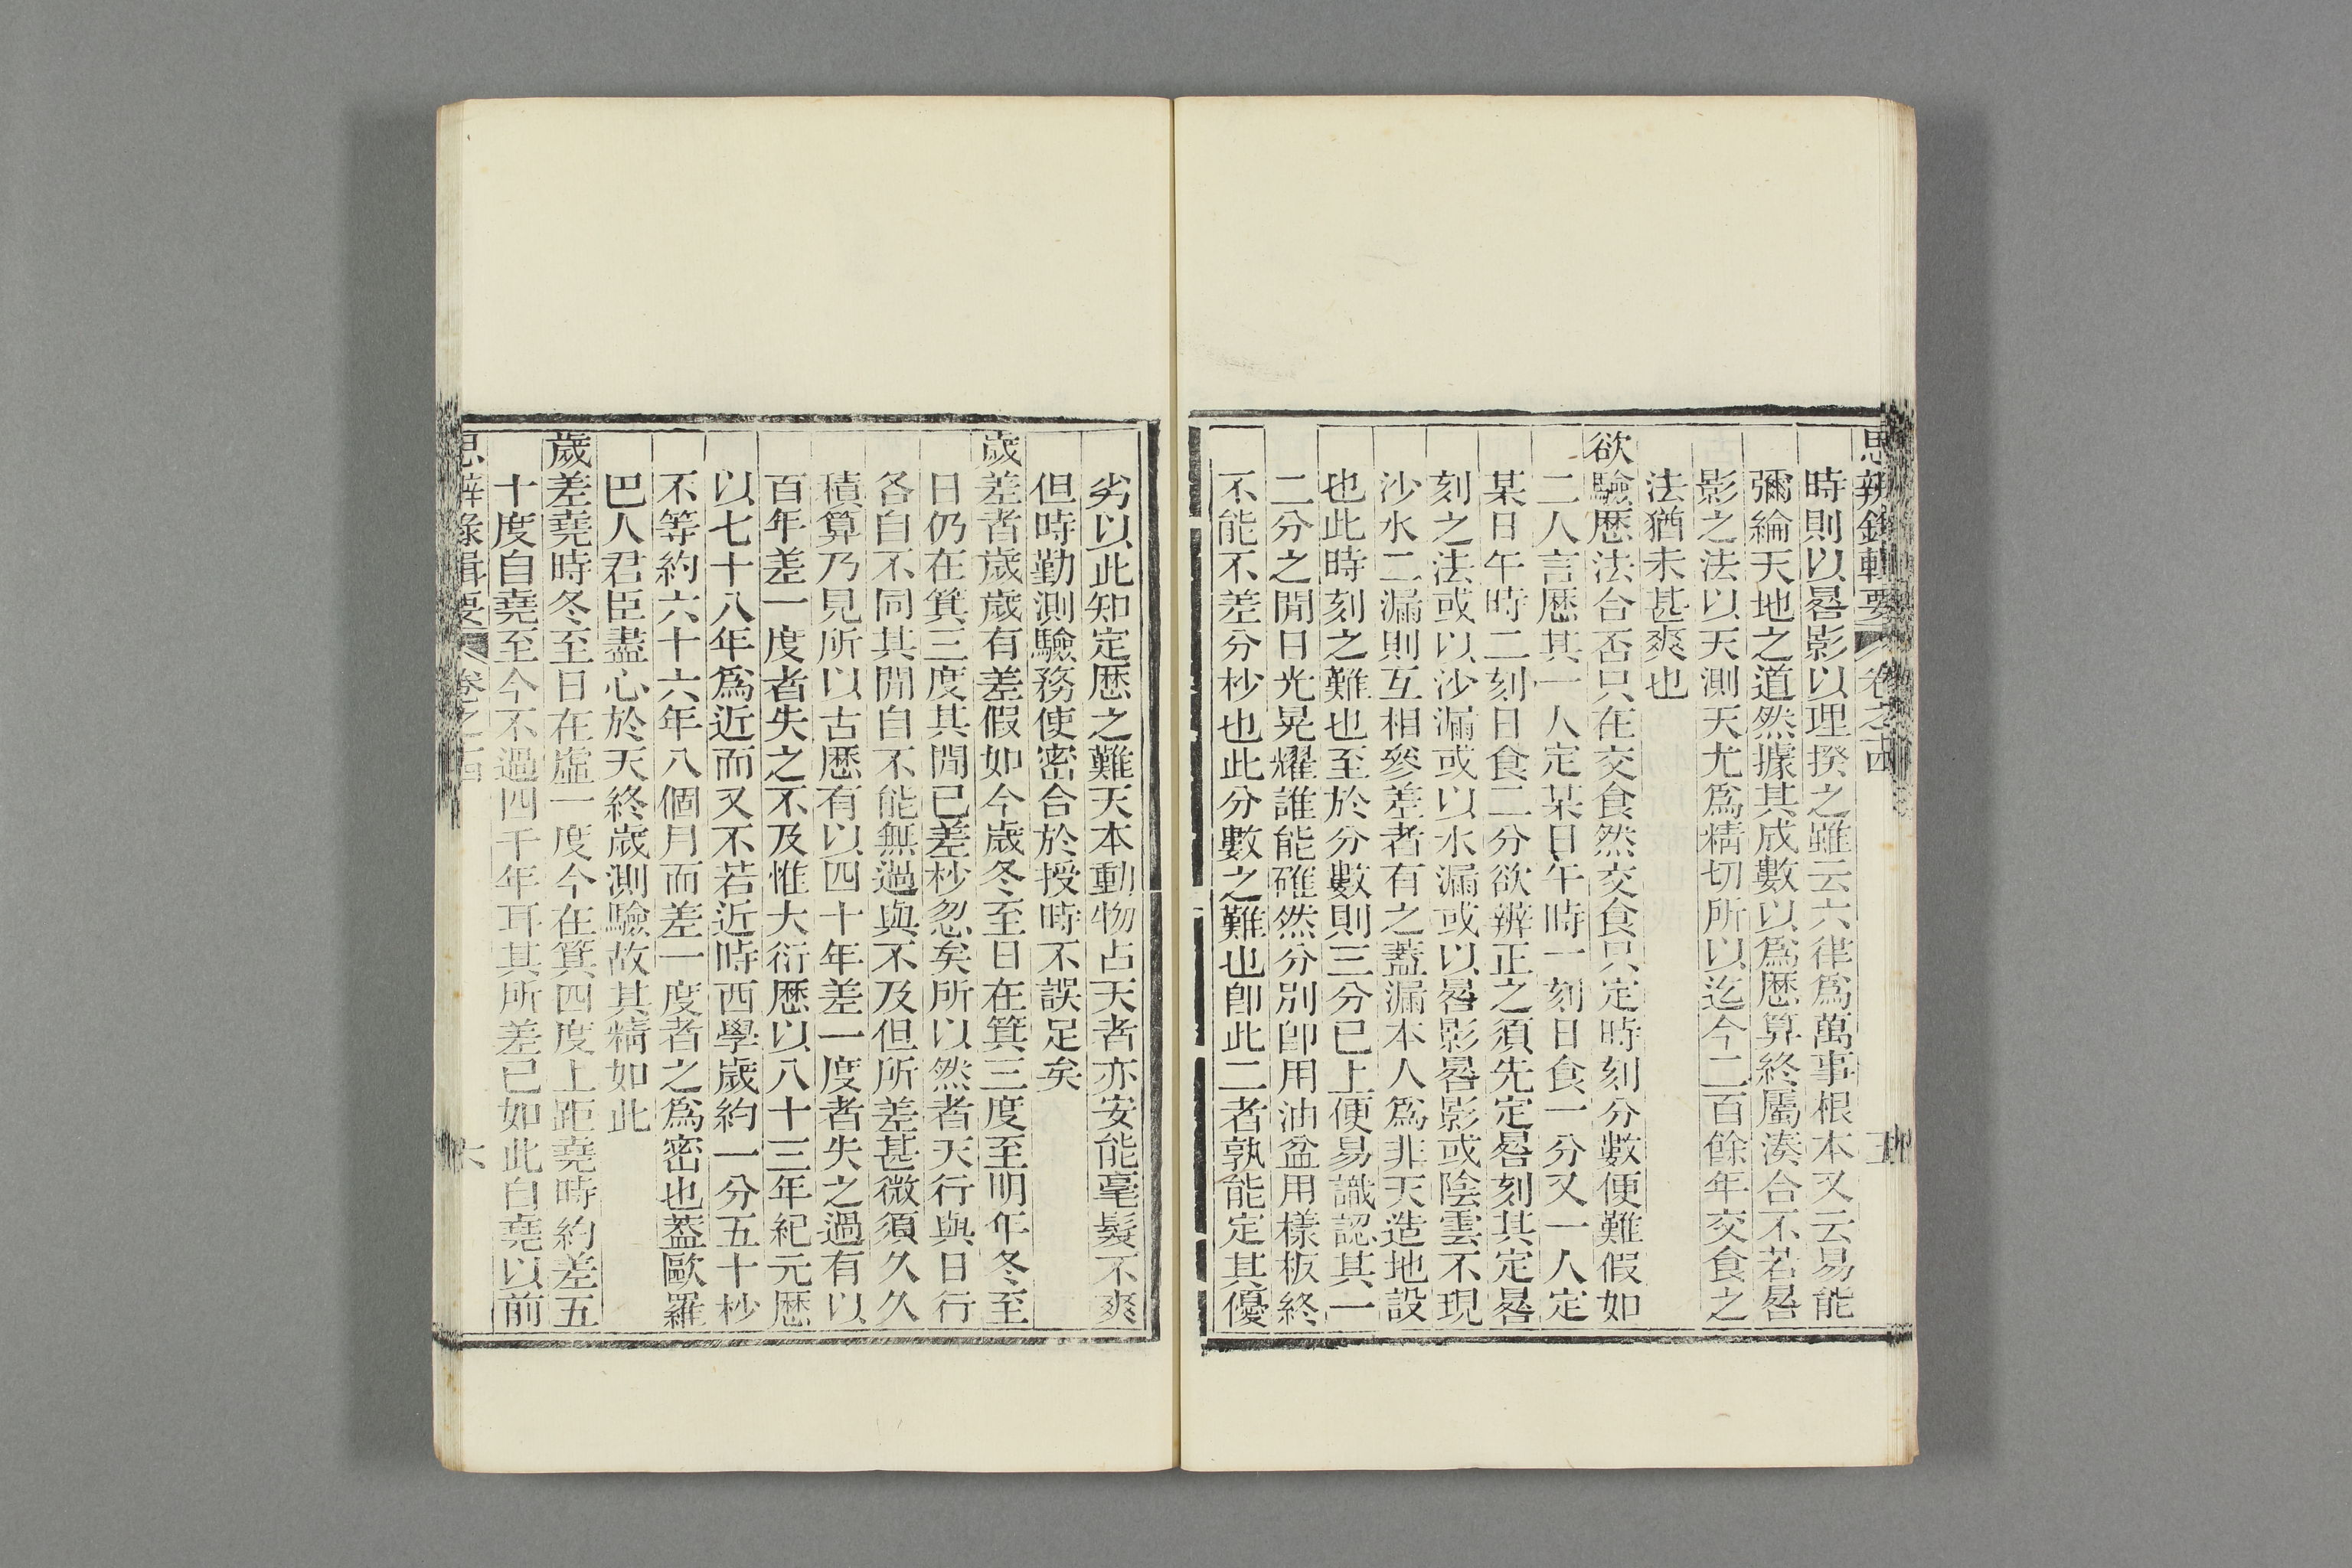 思辨錄輯要 卷之十四
時則以晷影以理揆之雖云六律爲萬事根本又云易能
彌綸天地之道然據其成數以爲歷算終屬湊合不若晷
影之法以天測天尤爲精切所以迄今二百餘年交食之
法猶未甚爽也
欲驗歷法合否只在交食然交食只定時刻分數便難假如
二人言歷其一人定某日午時一刻日食一分又一人定
某日午時二刻日食二分欲辨正之須先定晷刻其定晷
刻之法或以沙漏或以水漏或以晷影晷影或陰雲不現
沙水二漏則互相參差者有之蓋漏本人爲非天造地設
也此時刻之難也至於分數則三分已上便易識認其一
二分之閒日光晃耀誰能確然分別卽用油盆用樣板終
不能不差分杪也此分數之難也卽此二者孰能定其優
劣以此知定歷之難天本動物占天者亦安能毫髮不爽
但時勤測驗務使密合於授時不誤足矣
歲差者歲歲有差假如今歲冬至日在箕三度至明年冬至
日仍在箕三度其閒已差杪忽矣所以然者天行與日行
各自不同其閒自不能無過與不及但所差甚微須久久
積算乃見所以古歷有以四十年差一度者失之過有以
百年差一度者失之不及惟大衍歷以八十三年紀元歷
以七十八年爲近而又不若近時西學歲約一分五十杪
不等約六十六年八個月而差一度者之爲密也蓋歐羅
巴人君臣盡心於天終歲測驗故其精如此
歲差堯時冬至日在虛一度今在箕四度上距堯時約差五
十度自堯至今不過四千年耳其所差已如此自堯以前
思辨錄輯要 卷之十四